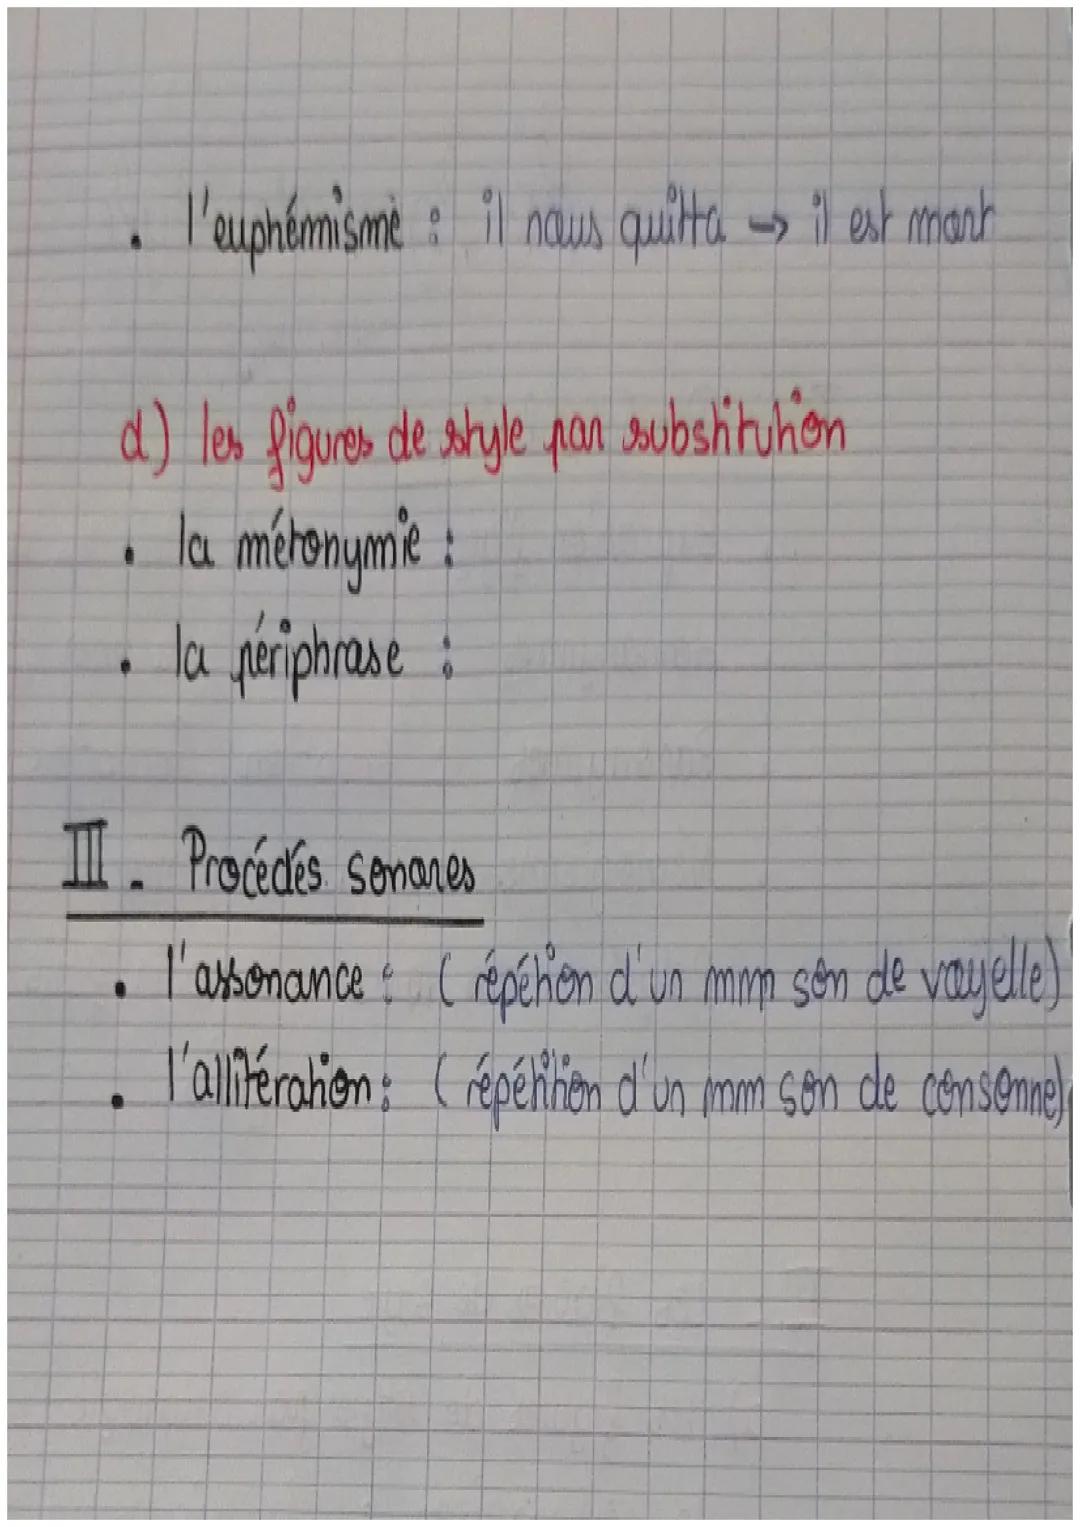 • l'euphémisme : il nous quitta → il est mort
d) les figures de style par substitution
• la métonymie :
• la périphrase :
III. Procédés sonores
• l'assonance : ( répétion d'un mm son de voyelle)
• l'allitération : ( répétition d'un mm son de consonne)